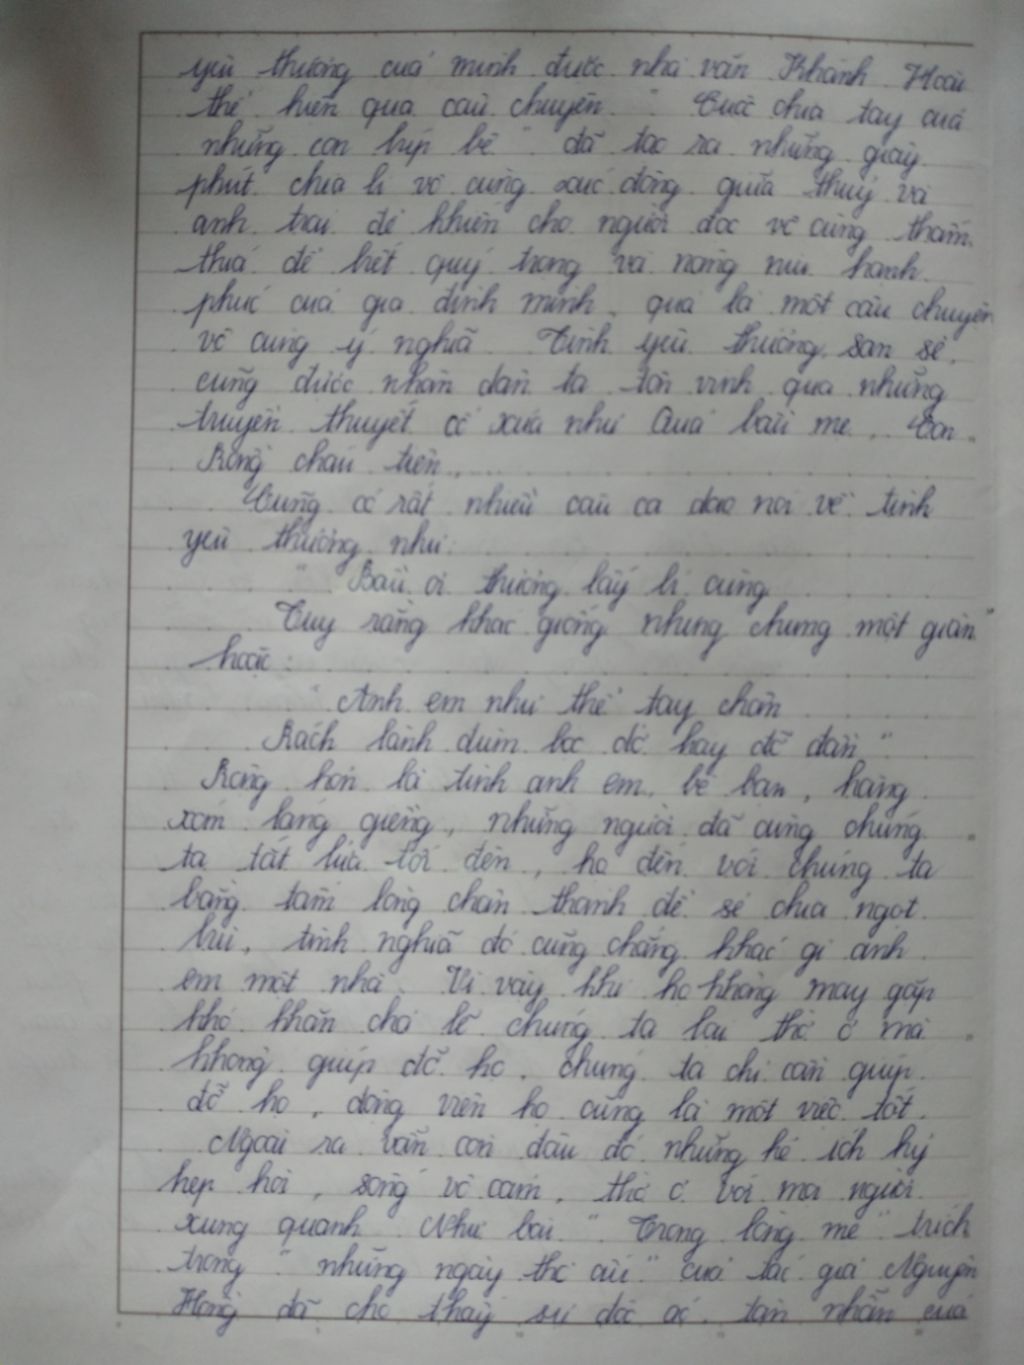 yêu thương của mình được nhà văn Khánh Hoài
thể hiện qua câu chuyện " Cuộc chia tay của
những con búp bê " đã tạo ra những giây
phút chia li vô cùng xúc động giữa Thuỷ và
anh trai để khiến cho người đọc vô cùng thấm
thía để biết quý trọng và nâng niu hạnh
phúc của gia đình mình, quả là một câu chuyện
vô cùng ý nghĩa. Tình yêu thương, san sẻ
cũng được nhân dân ta tôn vinh qua những
truyền thuyết cổ xưa như Quả bầu mẹ, Con
Rồng cháu tiên,...
Cũng có rất nhiều câu ca dao nói về tình
yêu thương như:
" Bầu ơi thương lấy bí cùng
Tuy rằng khác giống nhưng chung một giàn "
hoặc:
" Anh em như thể tay chân
Rách lành đùm bọc dở hay đỡ đần "
Rộng hơn là tình anh em, bè bạn, hàng
xóm láng giềng, những người đã cùng chúng
ta tắt lửa tối đèn, họ đến với chúng ta
bằng tấm lòng chân thành để sẻ chia ngọt
bùi, tình nghĩa đó cũng chẳng khác gì anh
em một nhà. Vì vậy khi họ không may gặp
khó khăn chả lẽ chúng ta lại thờ ơ mà
không giúp đỡ họ, chúng ta chỉ cần giúp
đỡ họ, động viên họ cũng là một việc tốt.
Ngoài ra vẫn còn đâu đó những kẻ ích kỷ
hẹp hòi, sống vô cảm, thờ ơ với mọi người
xung quanh. Như bài " Trong lòng mẹ " trích
trong " những ngày thơ ấu " của tác giả Nguyên
Hồng đã cho thấy sự độc ác, tàn nhẫn của